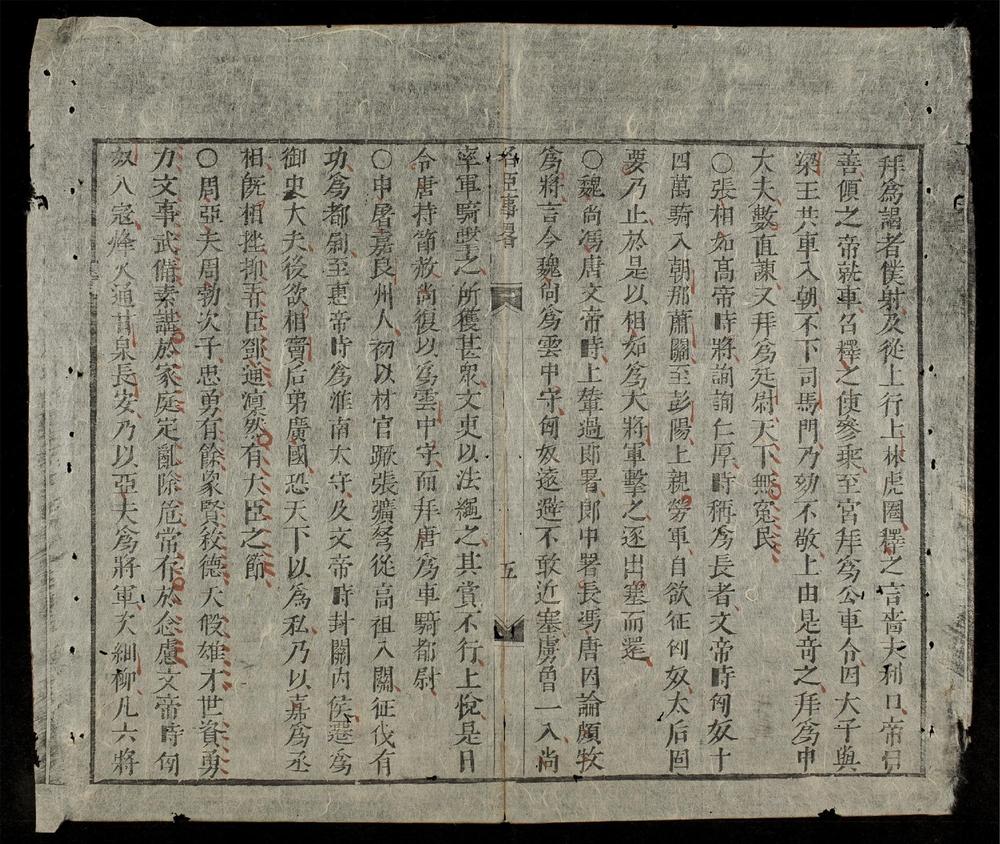 拜爲謁者僕射及從上行上林虎圈釋之言嗇夫利口帝曰
善傾之帝就車召釋之使參乘至宮拜爲公車令因太子與
梁王共車入朝不下司馬門乃劾不敬上由是竒之拜爲中
大夫數直諫又拜爲廷尉天下無寃民
○張相如高帝時將詢詢仁厚時稱爲長者文帝時匈奴十
四萬騎入朝那蕭關至彭陽上親勞軍自欲征匈奴太后固
要乃止於是以相如爲大將軍擊之逐出塞而還
○魏尚馮唐文帝時上輦過郎署郎中署長馮唐因論頗牧
爲將言今魏尚爲雲中守匈奴遠避不敢近塞虜曾一入尚
名臣事畧
五
率軍騎擊之所獲甚衆文吏以法繩之其賞不行上悅是日
令唐持節赦尚復以爲雲中守而拜唐爲車騎都尉
○申屠嘉良州人初以材官蹶張彍弩從高祖入關征伐有
功爲都尉至惠帝時爲淮南太守及文帝時封關內侯遷爲
御史大夫後欲相竇后弟廣國恐天下以爲私乃以嘉爲丞
相旣相挫抑弄臣鄧通凛然有大臣之節
○周亞夫周勃次子忠勇有餘象賢敍德天假雄才世資勇
力文事武備素講於家庭定亂除危常存於念慮文帝時匈
奴入寇烽火通甘泉長安乃以亞夫爲將軍次細柳凡六將